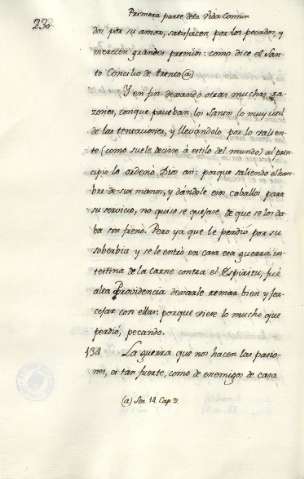 230
Primera parte dela Vida Comun
dos por su amor, satisfacen por los pecados, y
merecen grandes premios: como dice el San-
to Concilio de trento (a)
Y en fin dexando otras muchas ra-
zones, con que prueban los Santos lo muy util
de las tentaciones, y llevandolo por lo valien-
te (como suele decirse á estilo del mundo) al prin-
cipio lo ordenó Dios asi: porque saliendo el hom-
bre de sus manos, y dandole esos caballos para
su servicio, no quiso se quejase de que se los da-
ba sin freno. Pero ya que le perdio por su
soberbia y se le entró en casa esa guerra in-
testina de la carne contra el Espiritu; fue
alta Providencia dexarle remar bien y for-
cejar con ellas: porque viese lo mucho que
perdio, pecando.
138 La guerra que nos hacen las pasio-
nes, es tan fuerte, como de enemigos de casa
(a) Ses. 14. Cap. 9.